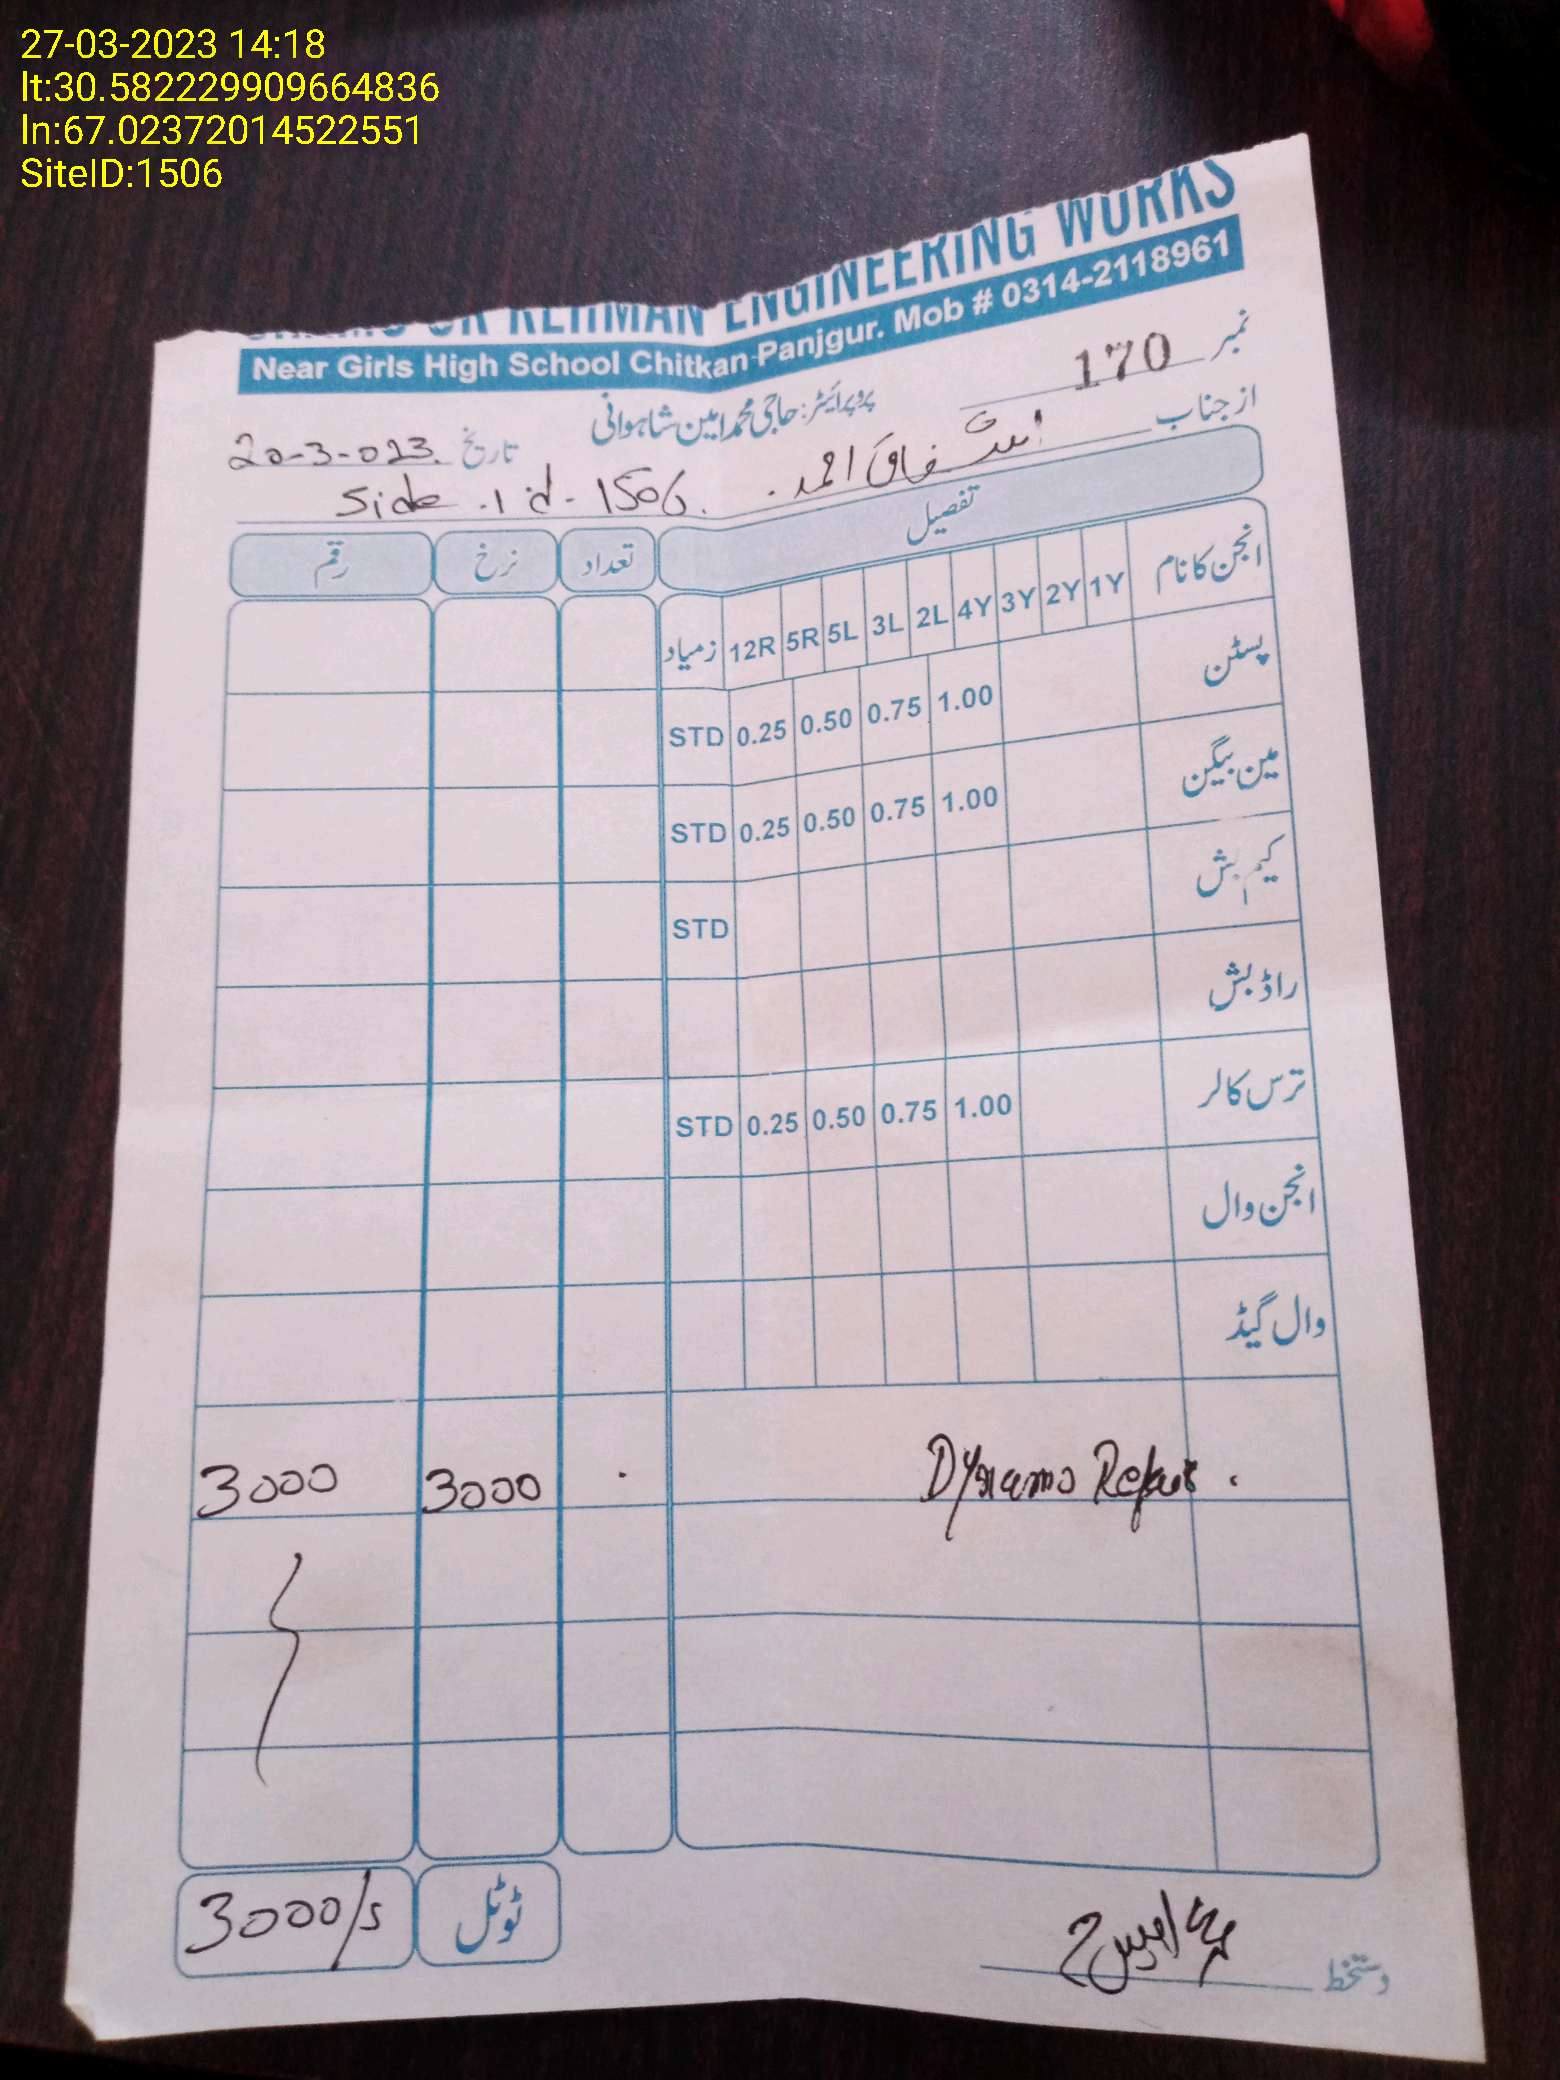 27-03-2023 14:18
lt:30.582229909664836
ln:67.02372014522551
SiteID:1506
UR REHMAN ENGINEERING WORKS
Near Girls High School Chitkan-Panjgur. Mob # 0314-2118961
نمبر 170
پروپرائیٹر: حاجی محمد امین شاہوانی
تاریخ 20-3-023.
از جناب اشفاق احمد.
Side .id - 1506.
تفصیل تعداد نرخ رقم
انجن کا نام 1Y 2Y 3Y 4Y 2L 3L 5L 5R 12R زمیاد
پسٹن 1.00 0.75 0.50 0.25 STD
مین بیگن 1.00 0.75 0.50 0.25 STD
کیم بش STD
راڈ بش
ترس کالر 1.00 0.75 0.50 0.25 STD
انجن وال
وال گیڈ
Dynamo Repair. 3000 3000
ٹوٹل 3000/s
دستخط